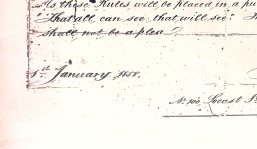 As these Rules will be placed in a pu
"That all can see, that will see"
shall not be a plea?
1st January, 1858.
No. 100,